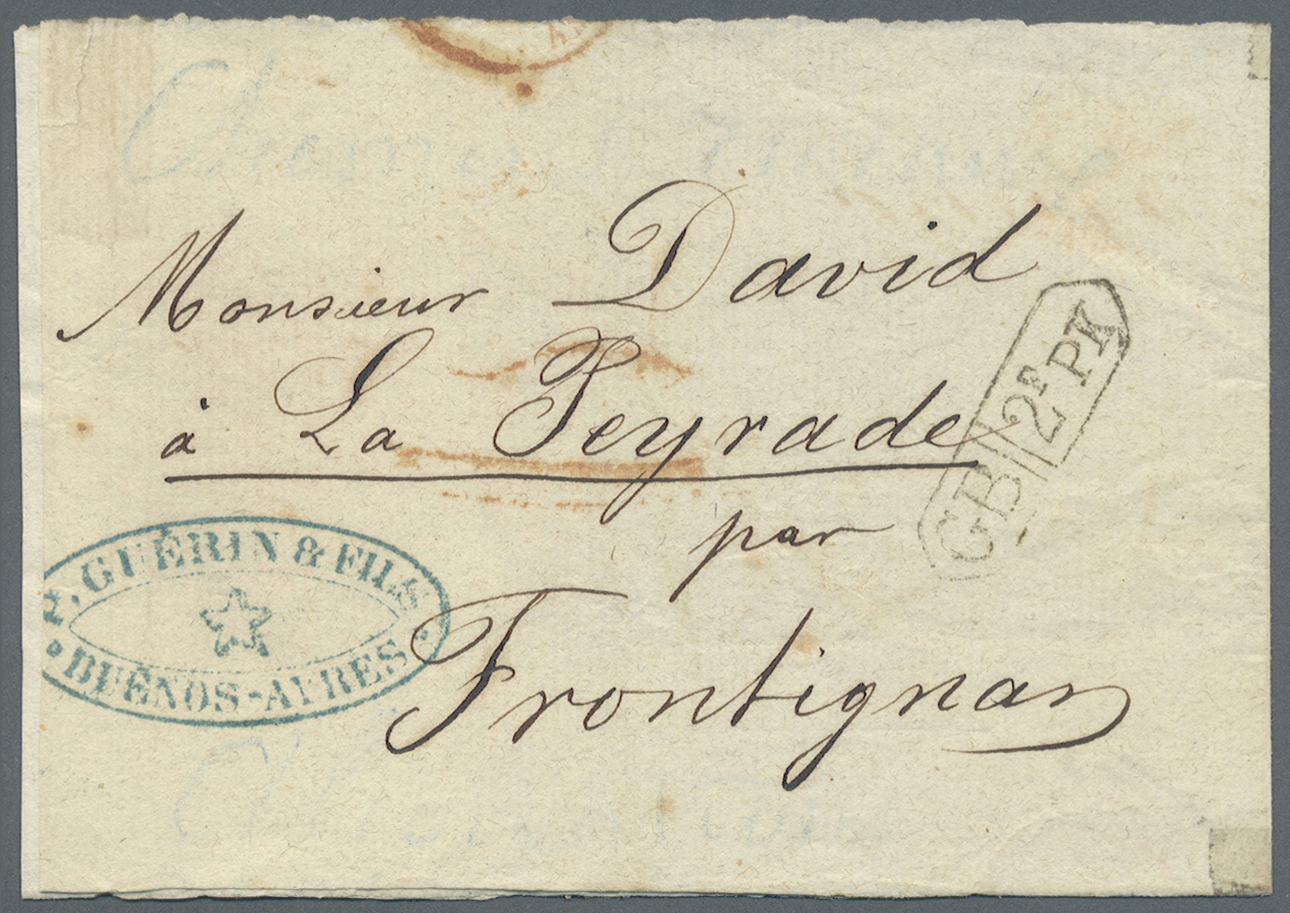 Monsieur David
à La Peyrade
par
Frontignan
GB 2F PK
P. GUÉRIN & FILS
BUÉNOS-AYRES